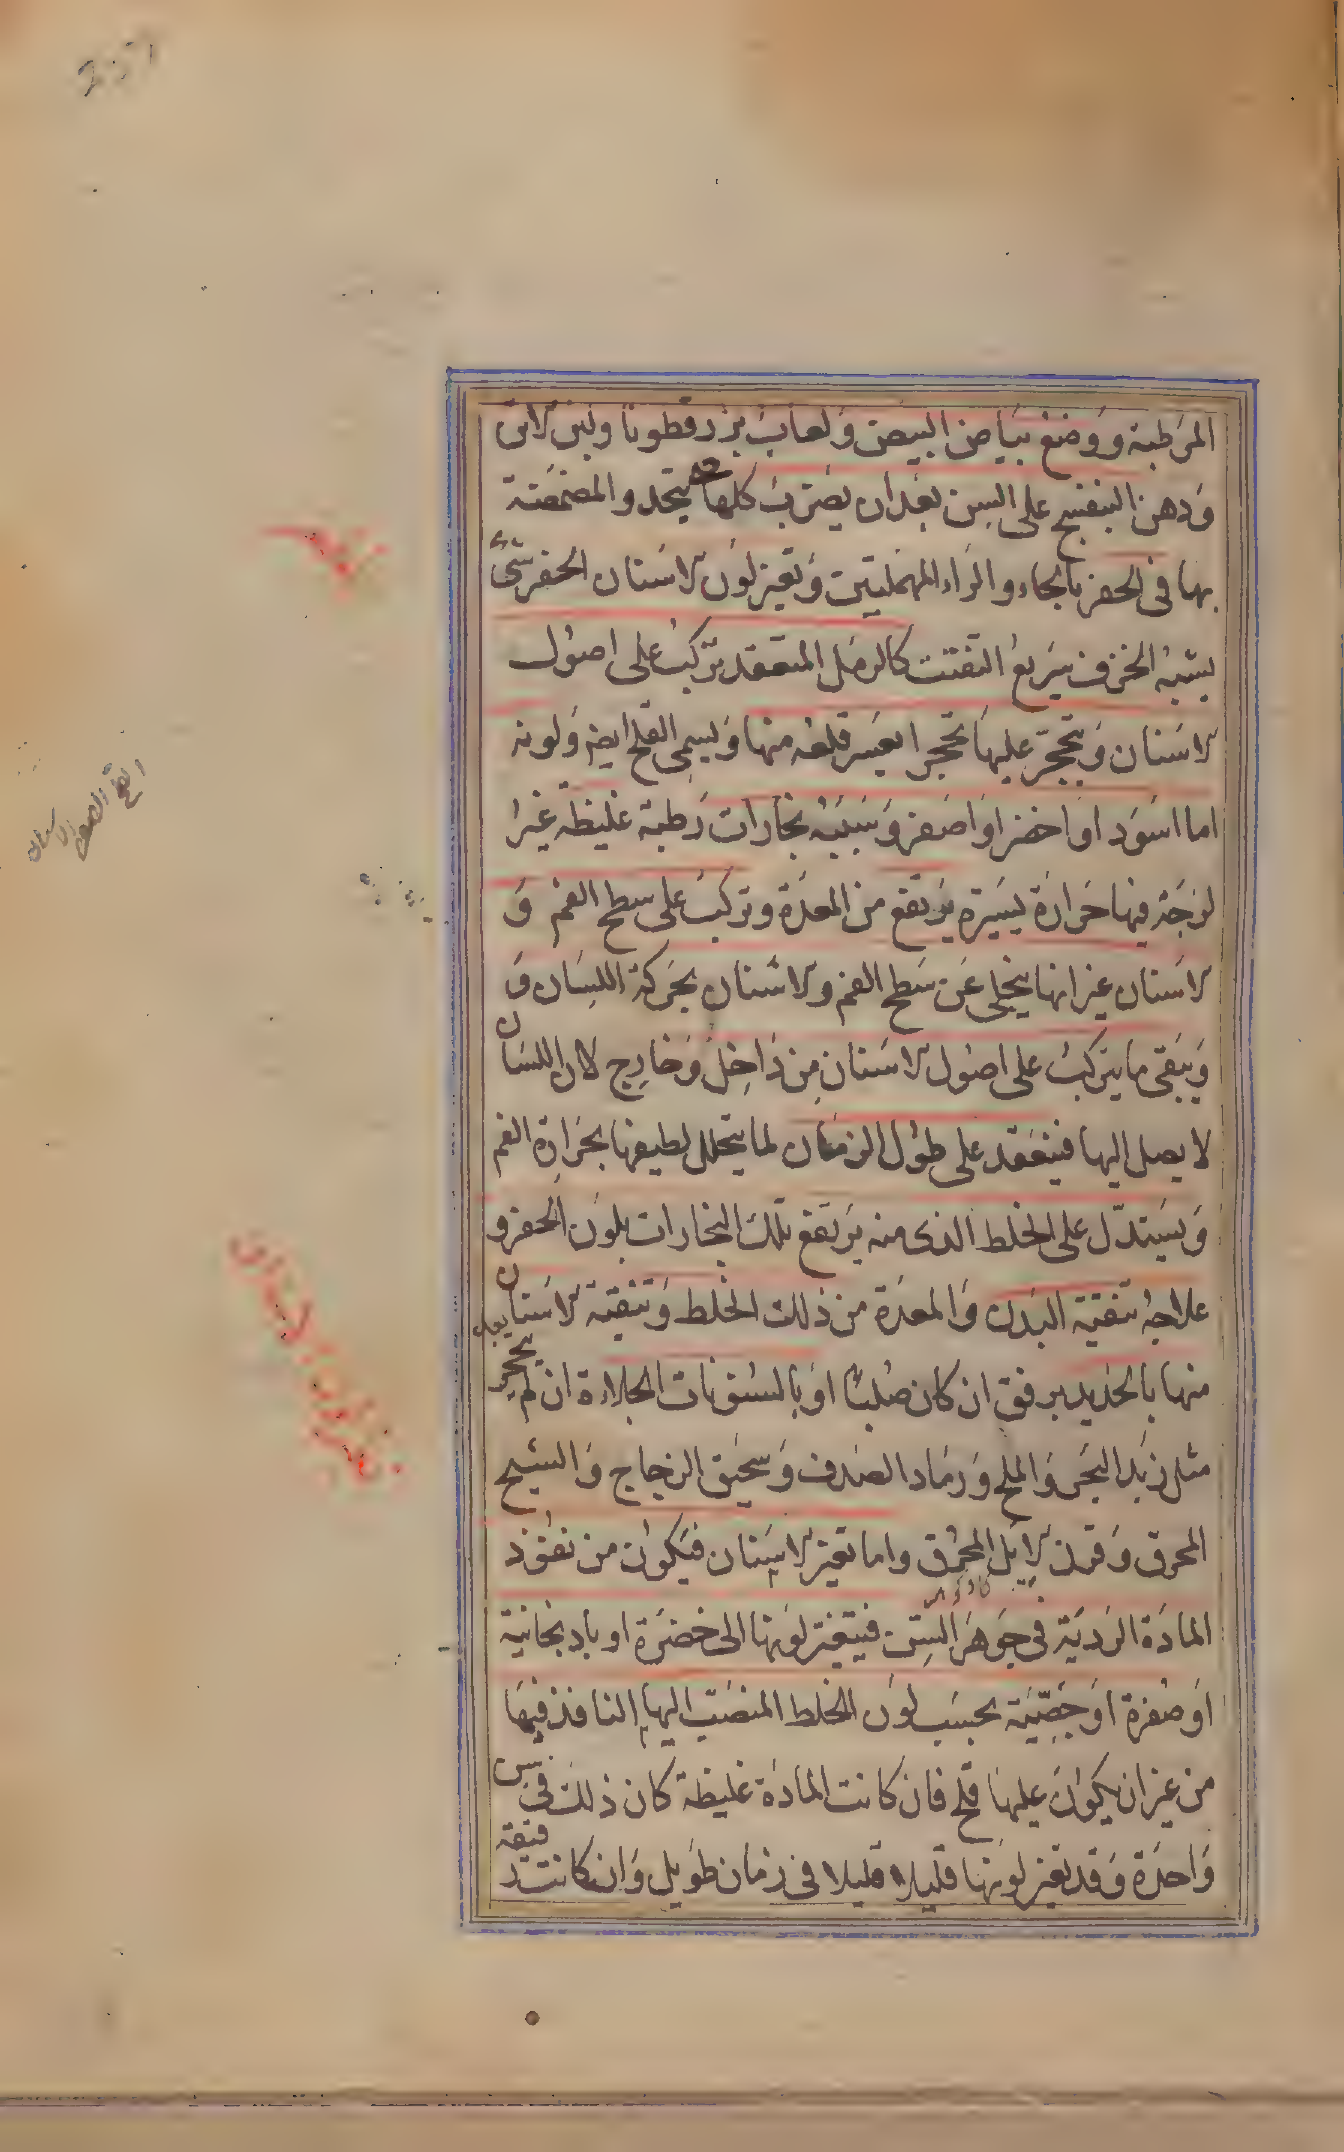 المرطبة ووضع بياض البيض ولعاب بزرقطونا ولبن الاتن
ودهن البنفسج على السن بعد ان يضرب كلها حتى يتحد والمضمضة
بها فى الحفر بالحاء والراء المهملتين وتغير لون الاسنان الحفر شئ
يشبه الخزف سريع التفتت كالرمل المتعقد يتركب على اصول
الاسنان ويتحجر عليها تحجرا يعسر قلعه منها ويسمى القلح ايضا ولونه
اما اسود او اخضر او اصفر وسببه بخارات رطبة غليظة غير
لزجة فيها حرارة يسيرة يرتفع من المعدة وتركب على سطح الفم و
الاسنان غير انها ينجلى عن سطح الفم والاسنان بحركة اللسان و
ويبقى ما يتركب على اصول الاسنان من داخل وخارج لان اللسان
لا يصل اليها فينعقد على طول الزمان لما يتحلل لطيفها بحرارة الفم
ويستدل على الخلط الذى منه يرتفع تلك البخارات بلون الحفر و
علاجه تنقية البدن والمعدة من ذلك الخلط وتنقية الاسنان بعد
منها بالحديد برفق ان كان صلبا او بالسنونات الجلاءة ان لم يتحجر
مثل زبد البحر والملح ورماد الصدف وسحيق الزجاج والشيح
المحرق وقرن الايل المحرق واما تغير الاسنان فيكون من نفوذ
المادة الردية فى جوهر السن فيتغير لونها الى خضرة او باذنجانية
او صفرة او جصية بحسب لون الخلط المنصب اليها النافذ فيها
من غير ان يكون عليها قلح فان كانت المادة غليظة كان ذلك فى سن
واحدة وقد يغير لونها قليلا قليلا فى زمان طويل وان كانت رقيقة